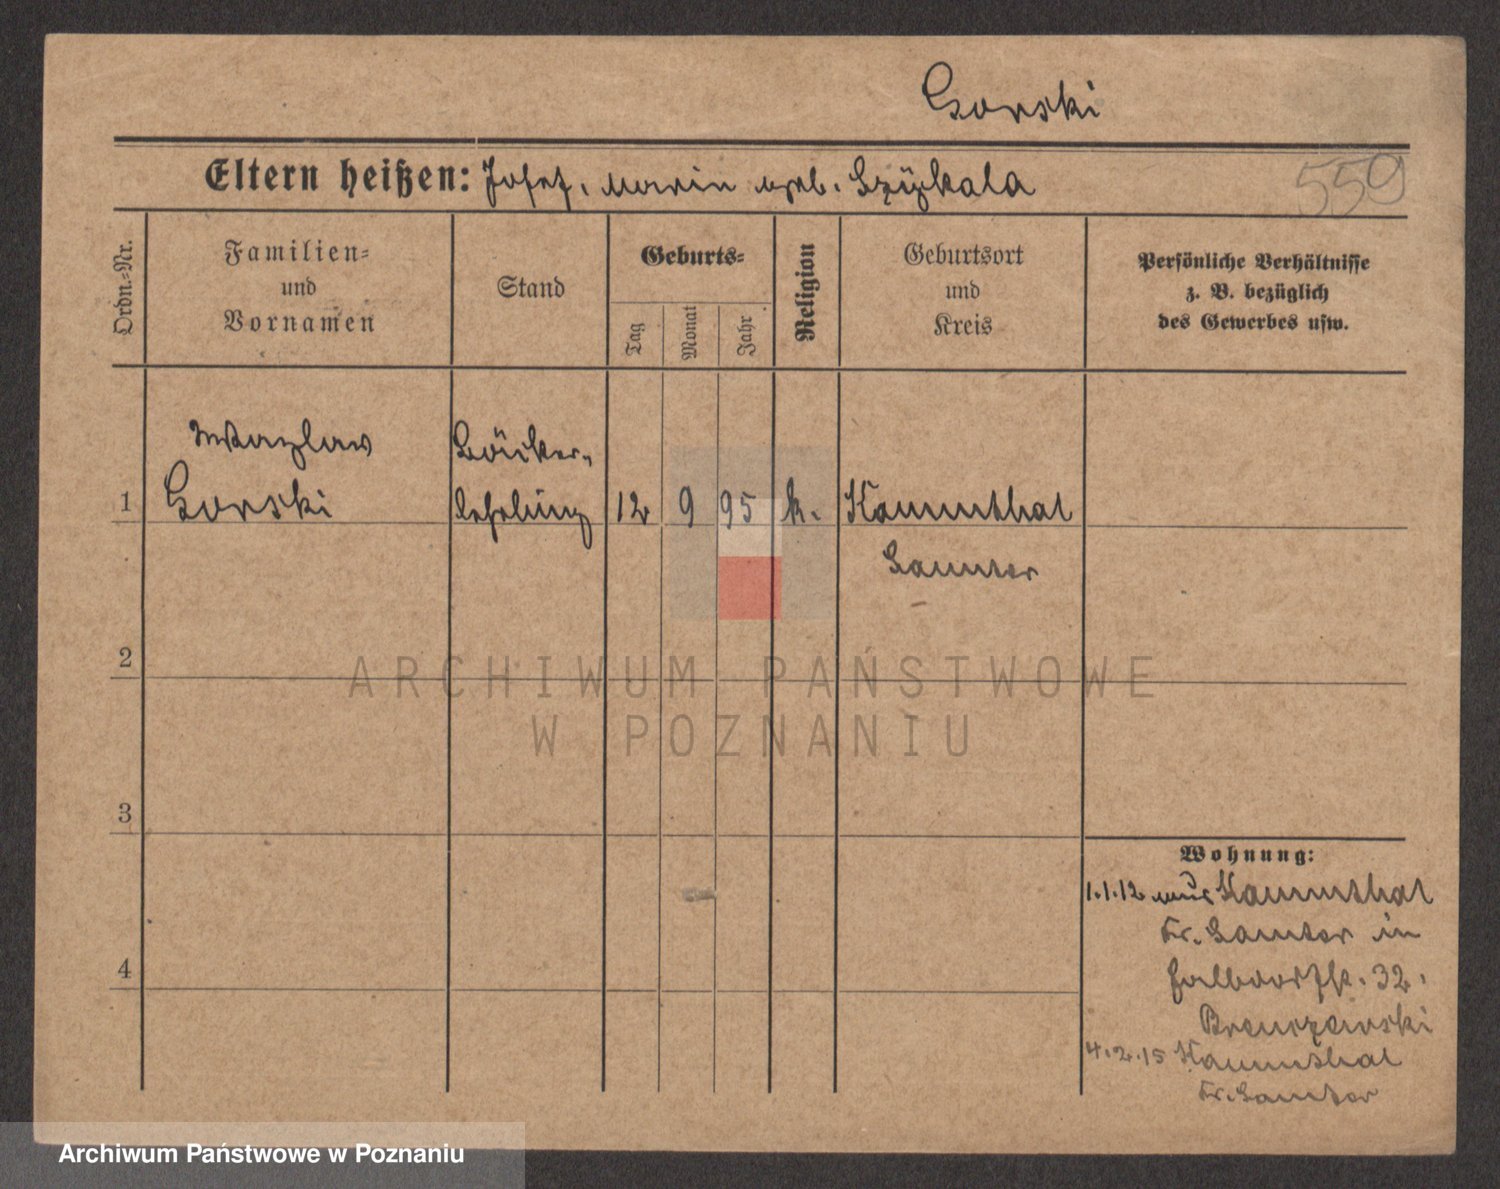 Gorski
Eltern heißen: Josef, Marie geb. Szÿkala
559
Ordn.-Nr.
Familien-
und
Vornamen
Stand
Geburts-
Tag
Monat
Jahr
Religion
Geburtsort
und
Kreis
Persönliche Verhältnisse
z. B. bezüglich
des Gewerbes usw.
Wazlaw
Gorski
Bäcker-
lehrling
1
12
9
95
k.
Kammthal
Samter
2
ARCHIWUM PAŃSTWOWE
W POZNANIU
3
Wohnung:
1.1.12 aus Kammthal
Kr. Samter in
Halbdorfstr. 32.
4
4.2.15 Kammthal
Kr. Samter
Archiwum Państwowe w Poznaniu